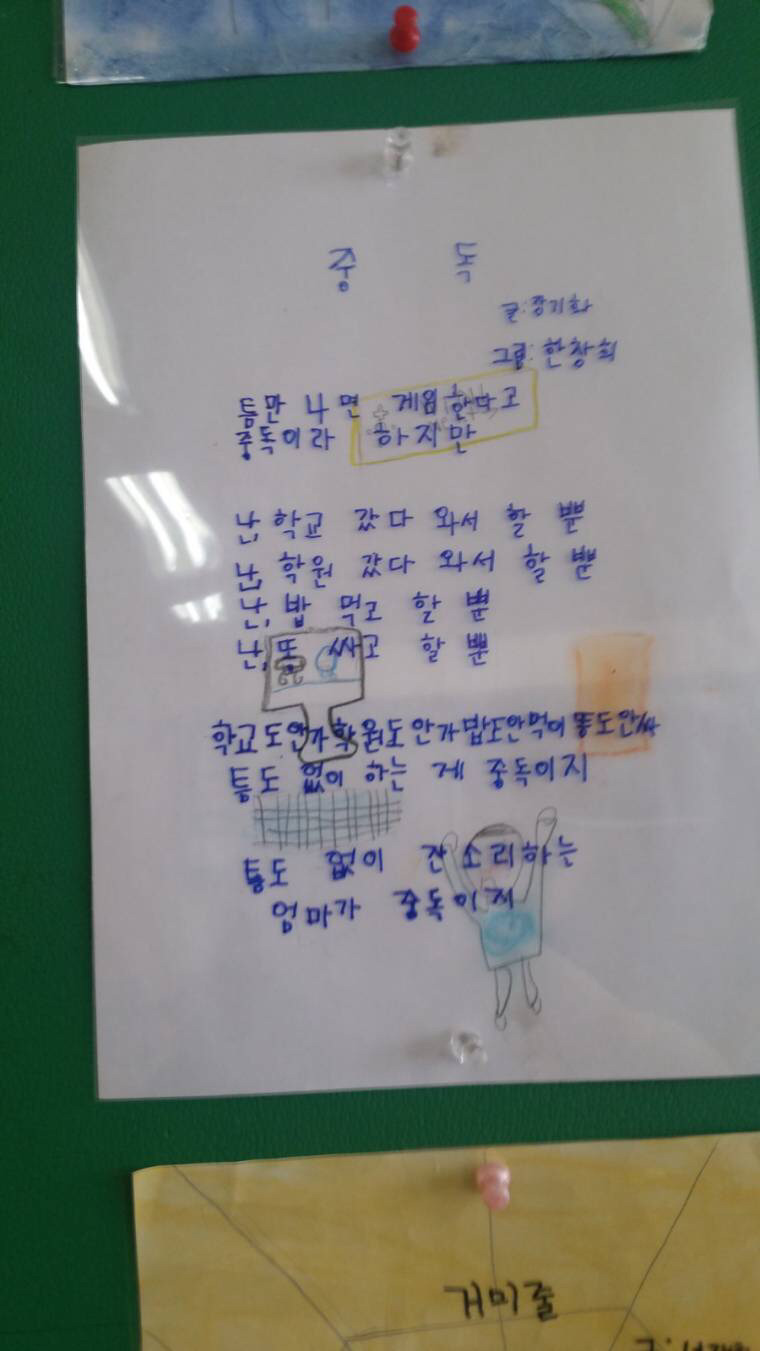 중 독
글: 장기화
그림: 한창희
틈만 나면 게임한다고
중독이라 하지만
난, 학교 갔다 와서 할 뿐
난, 학원 갔다 와서 할 뿐
난, 밥 먹고 할 뿐
난, 똥 싸고 할 뿐
학교도안가학원도안가밥도안먹어똥도안싸
틈도 없이 하는 게 중독이지
틈도 없이 잔소리하는
엄마가 중독이지
거미줄